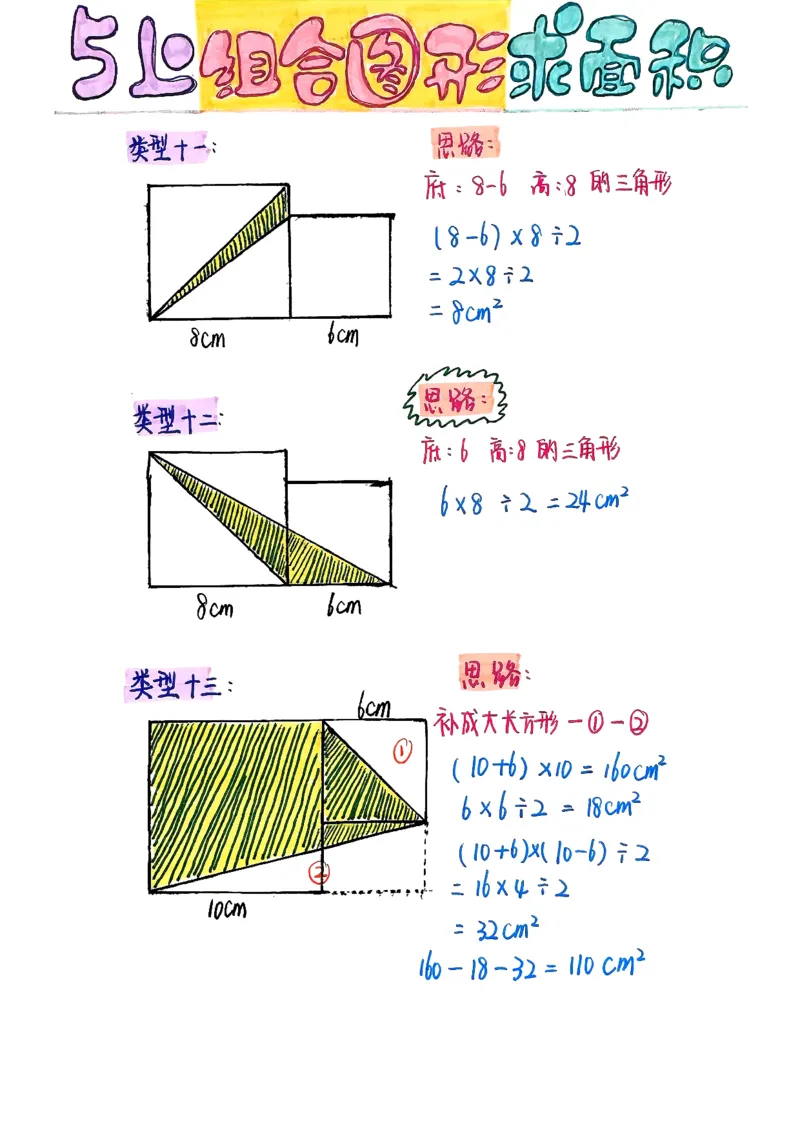 5上组合图形求面积
类型十一:
思路:
底:8-6 高:8 的三角形
(8-6)×8÷2
=2×8÷2
=8cm²
8cm
6cm
类型十二:
思路:
底:6 高:8 的三角形
6×8÷2=24cm²
8cm
6cm
类型十三:
思路:
6cm
补成大长方形-①-②
①
(10+6)×10=160cm²
6×6÷2=18cm²
(10+6)×(10-6)÷2
②
=16×4÷2
10cm
=32cm²
160-18-32=110cm²